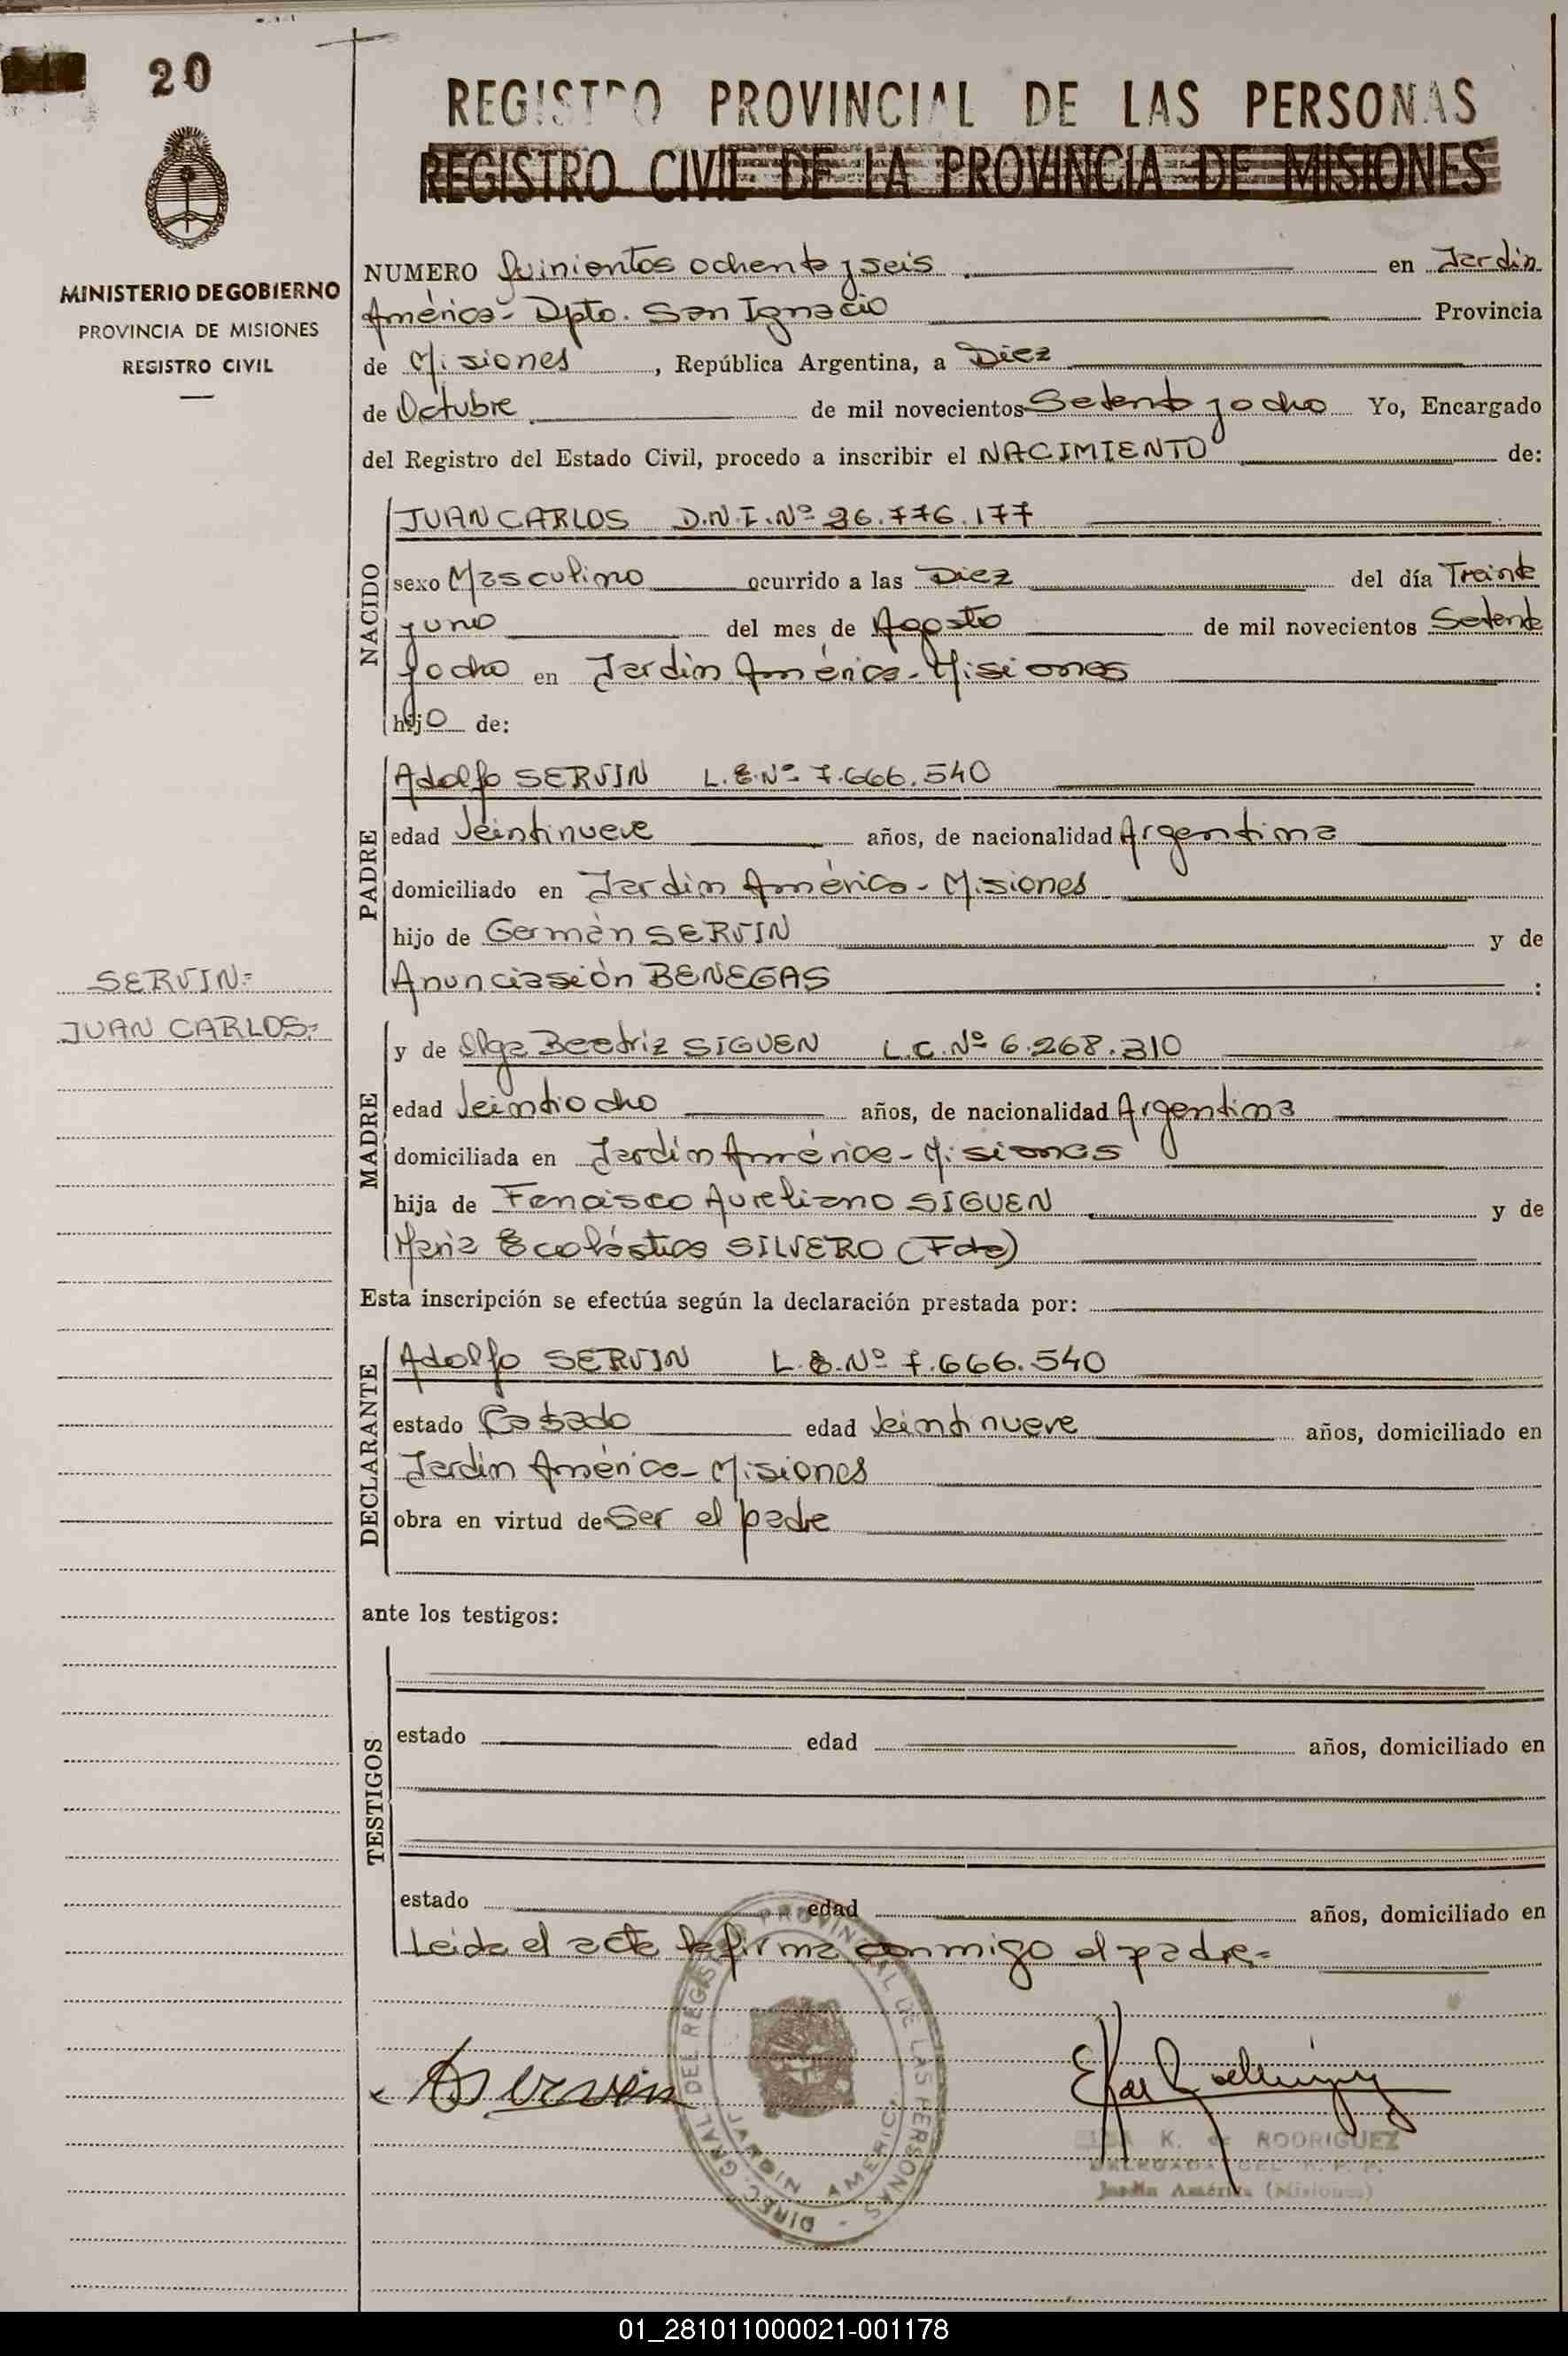 20
REGISTRO PROVINCIAL DE LAS PERSONAS
REGISTRO CIVIL DE LA PROVINCIA DE MISIONES
MINISTERIO DE GOBIERNO
PROVINCIA DE MISIONES
REGISTRO CIVIL
NUMERO Quinientos ochenta y seis en Jardín
América - Dpto. San Ignacio Provincia
de Misiones, República Argentina, a Diez
de Octubre de mil novecientos Setenta y ocho Yo, Encargado
del Registro del Estado Civil, procedo a inscribir el NACIMIENTO de:
NACIDO
JUAN CARLOS D.N.I. Nº 26.776.177
sexo Masculino ocurrido a las Diez del día Treinta
y uno del mes de Agosto de mil novecientos Setenta
y ocho en Jardín América - Misiones
hijo de:
PADRE
Adolfo SERVIN L.E. Nº 7.666.540
edad Veintinueve años, de nacionalidad Argentina
domiciliado en Jardín América - Misiones
hijo de Germán SERVIN y de
Anunciasión BENEGAS
SERVIN=
JUAN CARLOS=
MADRE
y de Olga Beatriz SIGUEN L.C. Nº 6.268.310
edad Veintiocho años, de nacionalidad Argentina
domiciliada en Jardín América - Misiones
hija de Fencisco Aureliano SIGUEN y de
Maria Ecolástica SILVERO (Fda)
Esta inscripción se efectúa según la declaración prestada por:
DECLARANTE
Adolfo SERVIN L.E. Nº 7.666.540
estado Casado edad Veintinueve años, domiciliado en
Jardín América - Misiones
obra en virtud de Ser el padre
ante los testigos:
TESTIGOS
estado edad años, domiciliado en
estado edad años, domiciliado en
Leida el acta la firma conmigo el padre=
A Servin
DIREC. GRAL DEL REGISTRO PROVINCIAL DE LAS PERSONAS - JARDIN AMERICA
K. de RODRIGUEZ
DELEGADA DEL R. P. P.
Jardín América (Misiones)
01_281011000021-001178